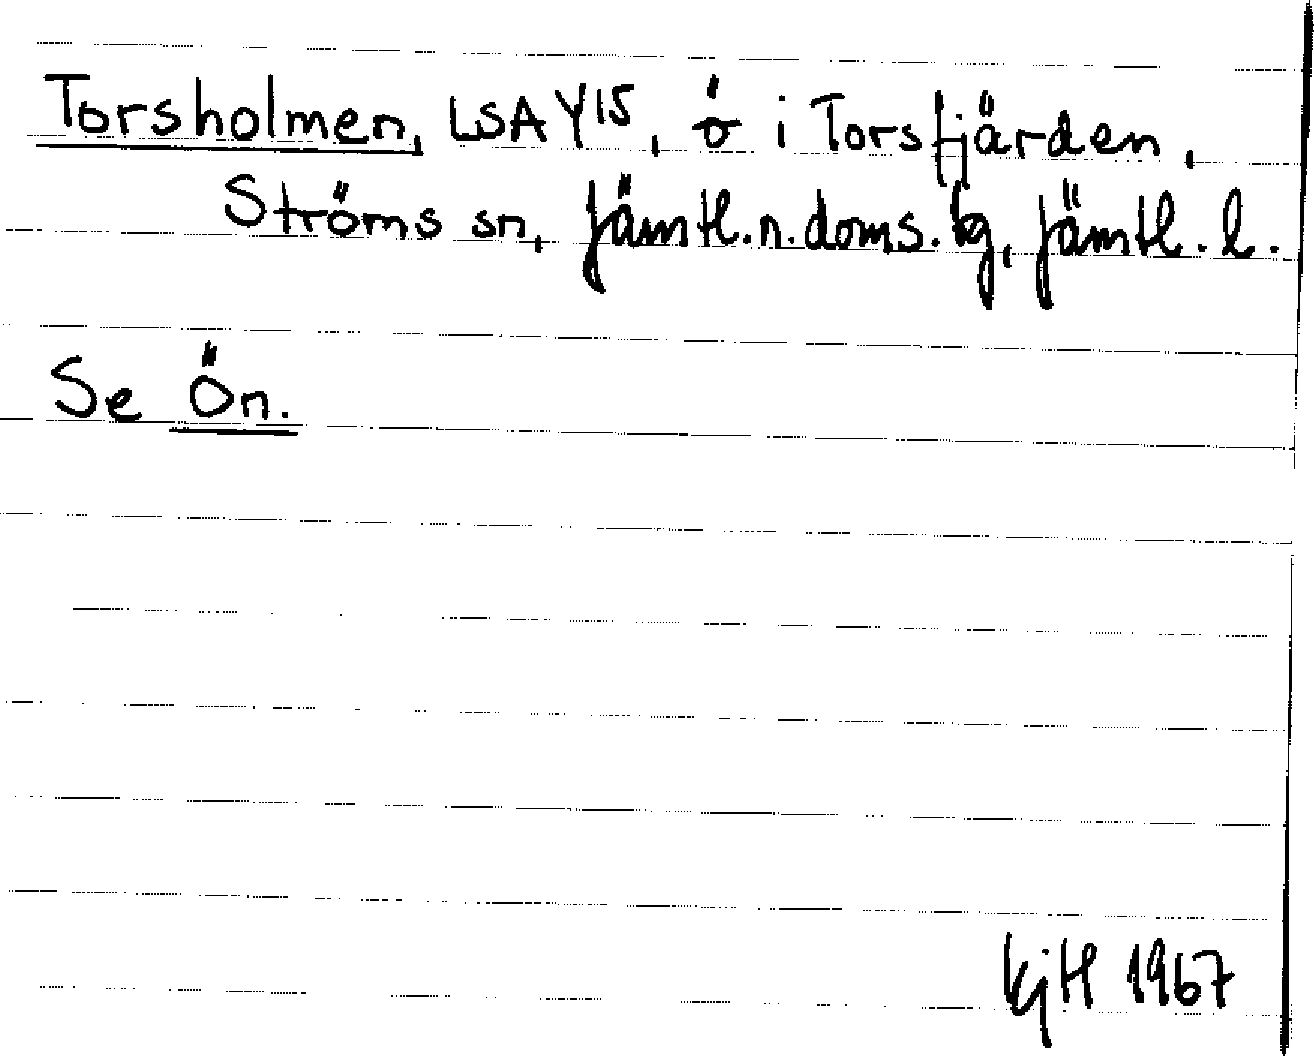 Torsholmen, LSA Y15, ö i Torsfjärden,
Ströms sn, Jämtl.n.doms.bg, Jämtl.l.
Se Ön.
KjH 1967